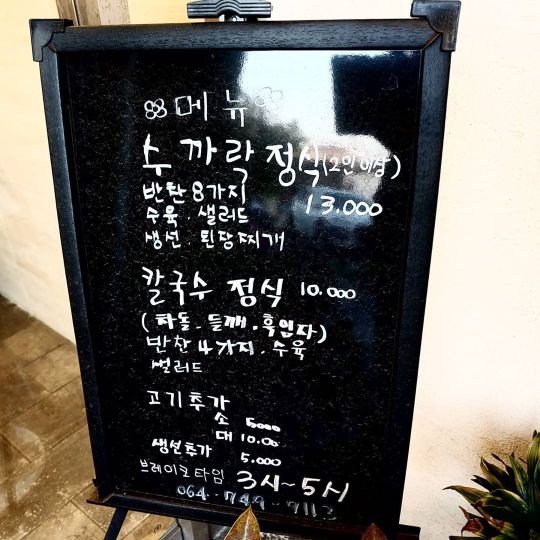 메뉴
수까락 정식 (2인 이상)
반찬 8가지 13.000
수육 . 샐러드
생선 . 된장찌개
칼국수 정식 10.000
(차돌 . 들깨 . 흑임자)
반찬 4가지 . 수육
샐러드
고기추가
소 5000
대 10.000
생선추가 5.000
브레이크타임 3시~5시
064-749-7113